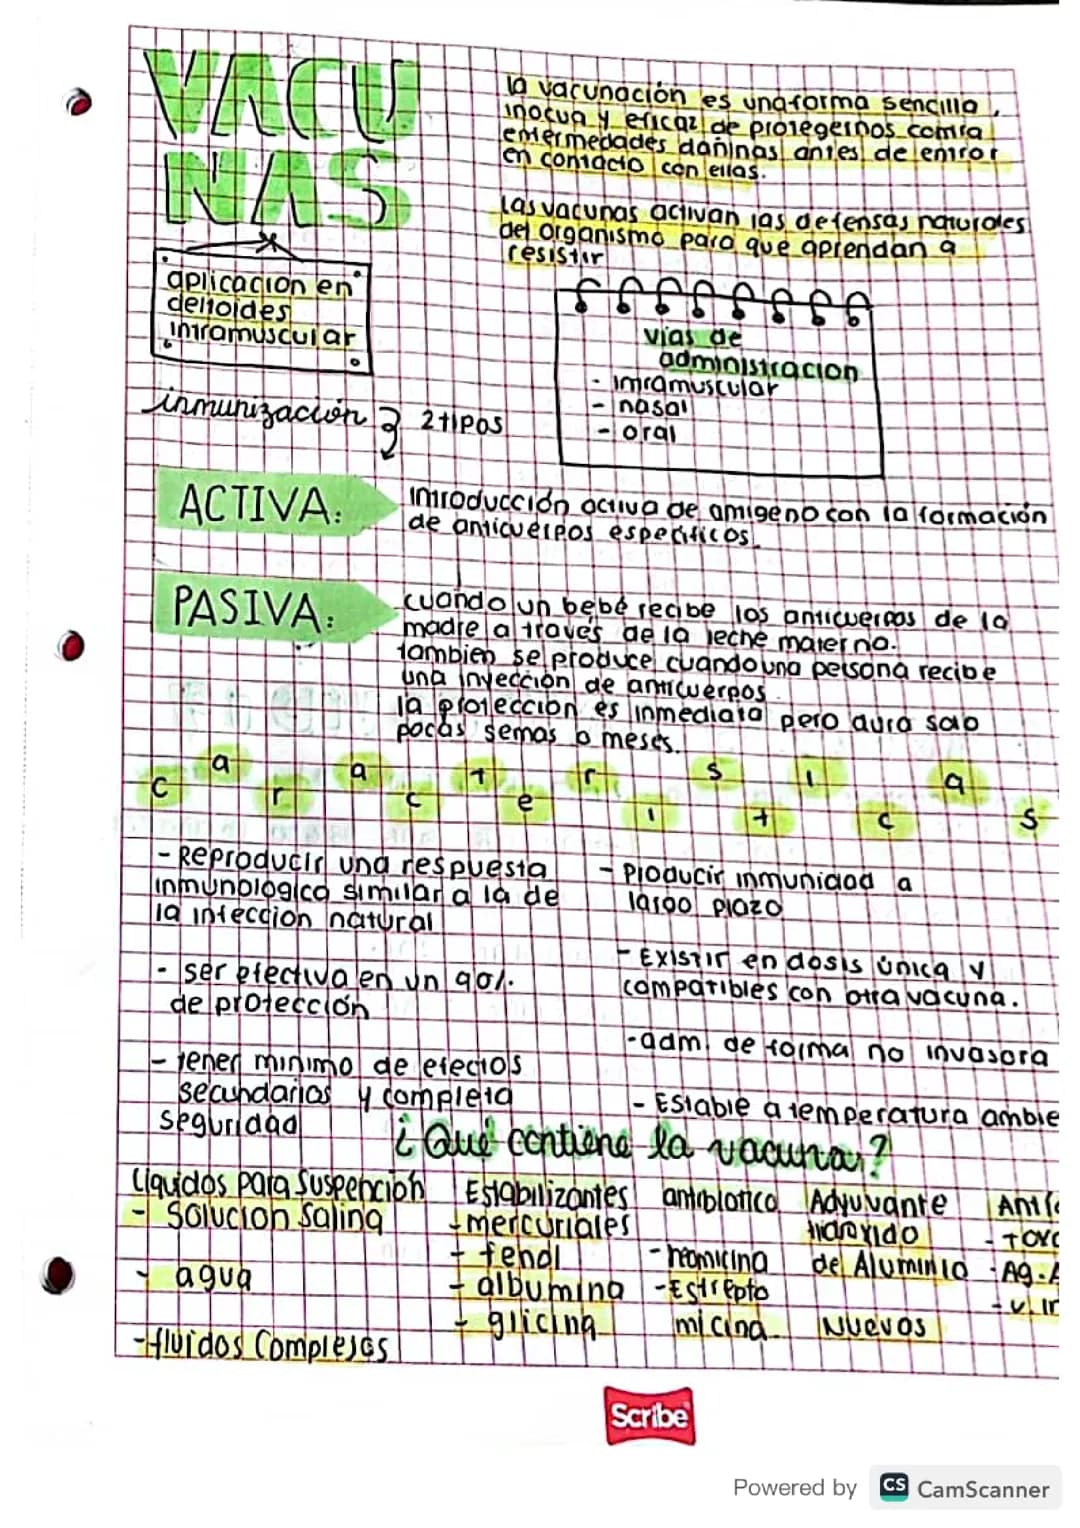 VACU
NAS
la vacunación es una forma sencilla,
inocua y eficaz de protegernos contra
enfermedades dañinas antes de entrar
en contacto con ellas.
Las vacunas activan las defensas naturales
del organismo para que aprendan a
resistir
aplicacion en
deltoides
intramuscular
vias de
administracion
- intramuscular
- nasal
- oral
inmunización } 2 tipos
ACTIVA:
introducción activa de antigeno con la formación
de anticuerpos especificos.
PASIVA:
cuando un bebé recibe los anticuerpos de la
madre a traves de la leche materna.
tambien se produce cuando una persona recibe
una inyección de anticuerpos
la protección es inmediata pero dura solo
pocas semas o meses.
caracteristicas
- Reproducir una respuesta
inmunologica similar a la de
la infeccion natural
- ser efectiva en un 90%.
de protección
- tener minimo de efectos
secundarios y completa
seguridad
- Producir inmunidad a
largo plazo
- Existir en dosis única y
compatibles con otra vacuna.
- adm. de forma no invasora
- Estable a temperatura ambie
¿Qué contiene la vacuna?
Liquidos para Suspención
- Solucion Salina
- agua
- fluidos Complejos
Estabilizantes
- mercuriales
- fenol
- albumina
- glicina
antibiotico
- neomicina
- Estrepto
micina
Adyuvante
hidroxido
del Aluminio
Nuevos
- Ag.
Scribe
Powered by CS CamScanner